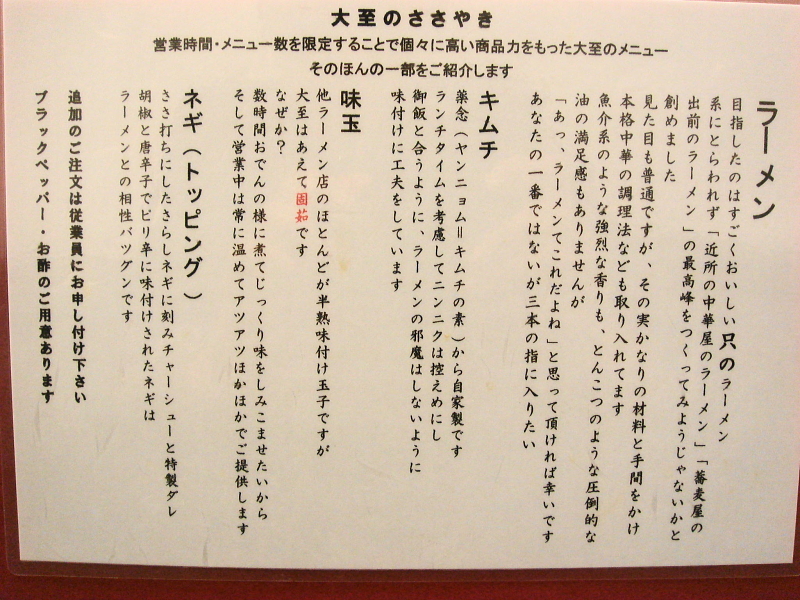 大至のささやき
営業時間・メニュー数を限定することで個々に高い商品力をもった大至のメニュー
そのほんの一部をご紹介します
ラーメン
目指したのはすごくおいしい只のラーメン
系にとらわれず「近所の中華屋のラーメン」「蕎麦屋の
出前のラーメン」の最高峰をつくってみようじゃないかと
創めました
見た目も普通ですが、その実かなりの材料と手間をかけ
本格中華の調理法なども取り入れてます
魚介系のような強烈な香りも、とんこつのような圧倒的な
油の満足感もありませんが
「あっ、ラーメンてこれだよね」と思って頂ければ幸いです
あなたの一番ではないが三本の指に入りたい
キムチ
薬念(ヤンニョム＝キムチの素)から自家製です
ランチタイムを考慮してニンニクは控えめにし
御飯と合うように、ラーメンの邪魔はしないように
味付けに工夫をしています
味玉
他ラーメン店のほとんどが半熟味付け玉子ですが
大至はあえて固茹です
なぜか?
数時間おでんの様に煮てじっくり味をしみこませたいから
そして営業中は常に温めてアツアツほかほかでご提供します
ネギ(トッピング)
ささ打ちにしたさらしネギに刻みチャーシューと特製ダレ
胡椒と唐辛子でピリ辛に味付けされたネギは
ラーメンとの相性バツグンです
追加のご注文は従業員にお申し付け下さい
ブラックペッパー・お酢のご用意あります